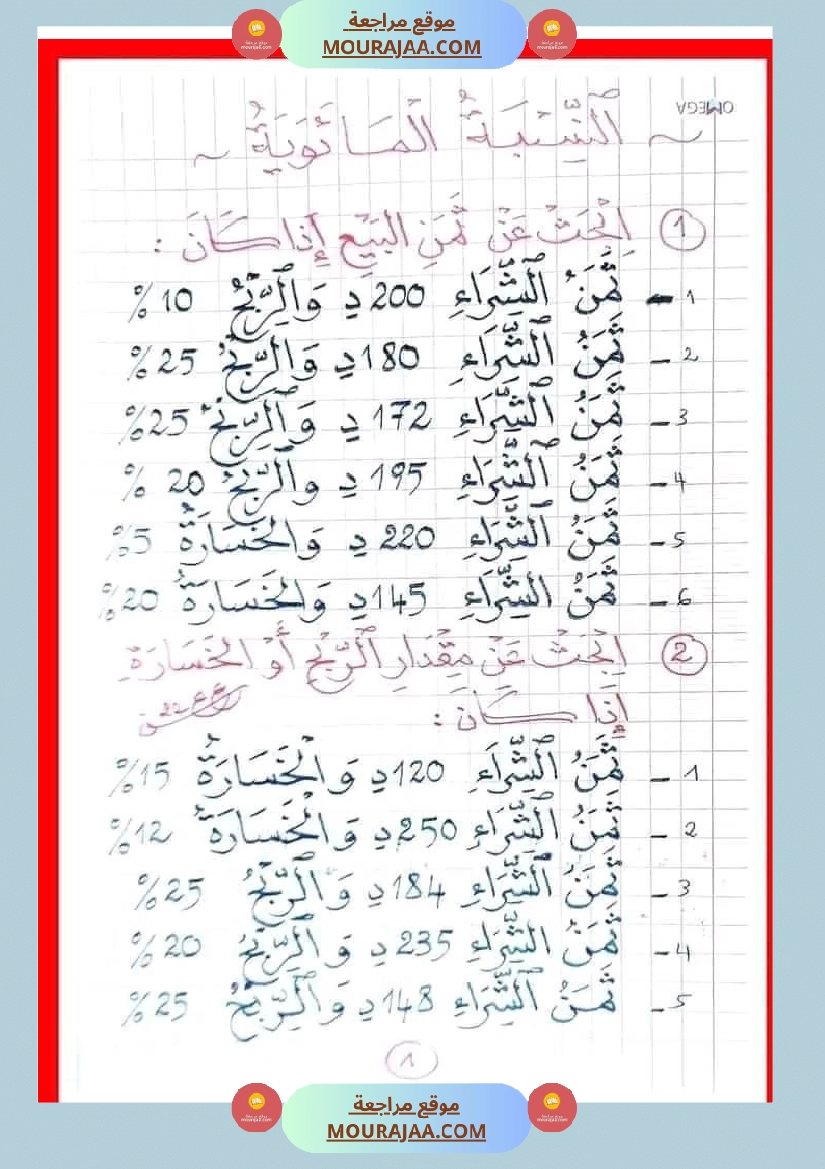 موقع مراجعة
MOURAJAA.COM
OMEGA
~ اَلنِّسْبَةُ الْمِائَوِيَةُ ~
① اِبْحَثْ عَنْ ثَمَنِ البَيْعِ إِذَا كَانَ :
1 - ثَمَنُ اَلشِّرَاءِ 200 دِ وَالرِّبْحُ 10 %
2 - ثَمَنُ اَلشِّرَاءِ 180 دِ وَالرِّبْحُ 25 %
3 - ثَمَنُ اَلشِّرَاءِ 172 دِ وَالرِّبْحُ 25 %
4 - ثَمَنُ اَلشِّرَاءِ 195 دِ والرِّبْحُ 20 %
5 - ثَمَنُ اَلشِّرَاءِ 220 دِ وَالخَسَارَةُ 5 %
6 - ثَمَنُ الشِّرَاءِ 145 دِ وَالخَسَارَةُ 20 %
② اِبْحَثْ عَنْ مِقْدَارِ اَلرِّبْحِ أَوْ الخَسَارَةِ
إِذَا كَانَ :
1 - ثَمَنُ اَلشِّرَاءِ 120 دِ وَالْخَسَارَةُ 15 %
2 - ثَمَنُ اَلشِّرَاءِ 250 دِ وَالْخَسَارَةُ 12 %
3 - ثَمَنُ اَلشِّرَاءِ 184 دِ وَالرِّبْحُ 25 %
4 - ثَمَنُ الشِّرَاءِ 235 دِ وَالرِّبْحُ 20 %
5 - ثَمَنُ اَلشِّرَاءِ 148 دِ وَالرِّبْحُ 25 %
1
موقع مراجعة
MOURAJAA.COM